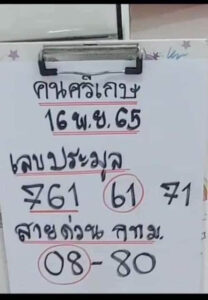 คนศรีเกษ
16 พ.ย. 65
เลขประมูล
761 61 71
สายด่วน กทม.
08-80